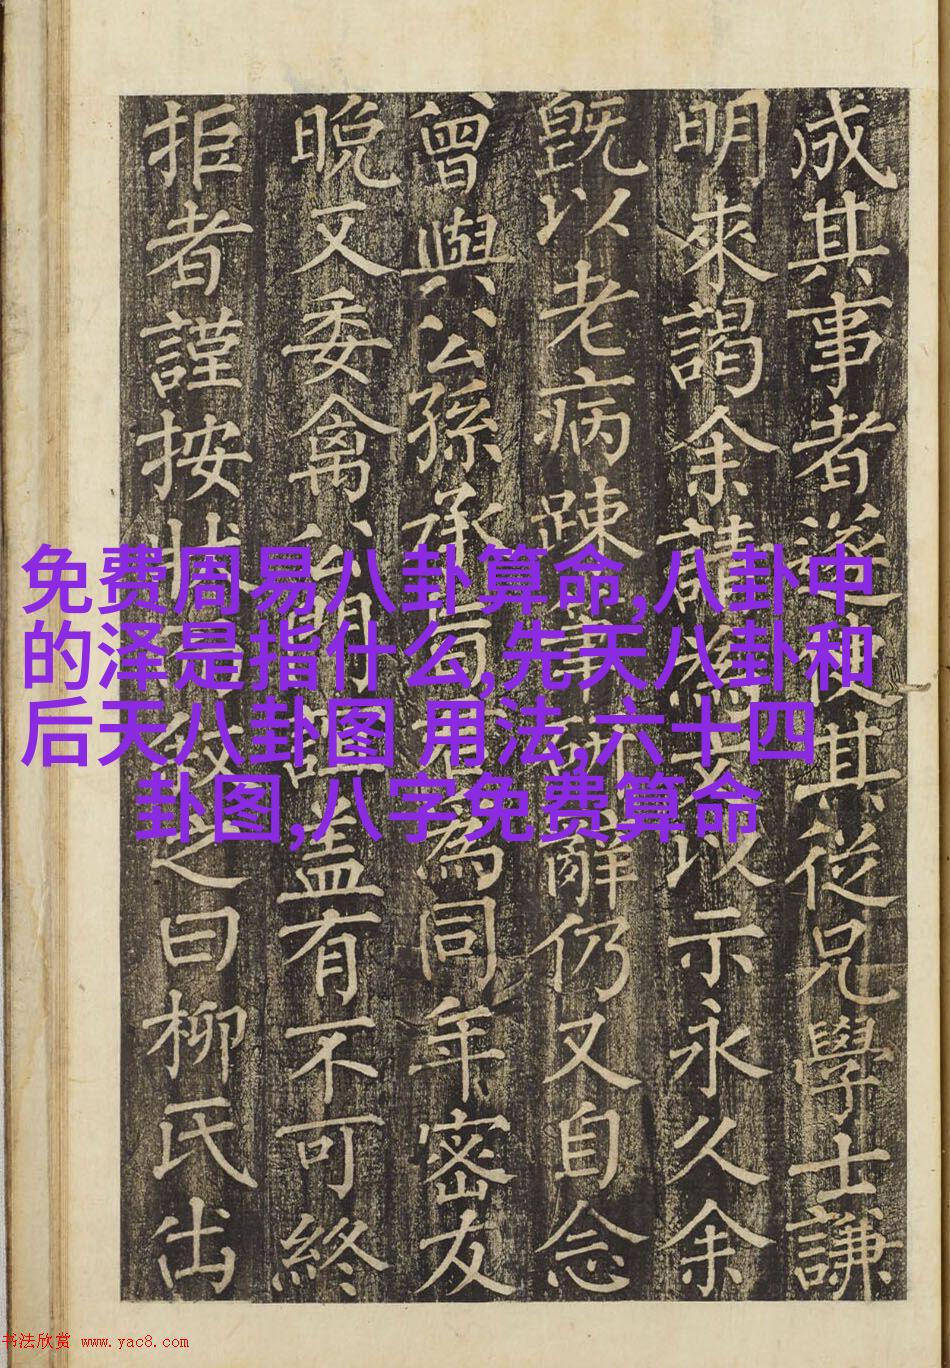 成其事者遂使其從兄學士謙
明來謁余請為以示永久余
既以老病踈辭仍又自念
曾與公孫承為同年密友
晚又委禽公門誼蓋有不可終
拒者謹按狀之曰柳氏出
免费周易八卦算命,八卦中
的泽是指什么,先天八卦和
后天八卦图 用法,六十四
卦图,八字免费算命
书法欣赏 www.yac8.com